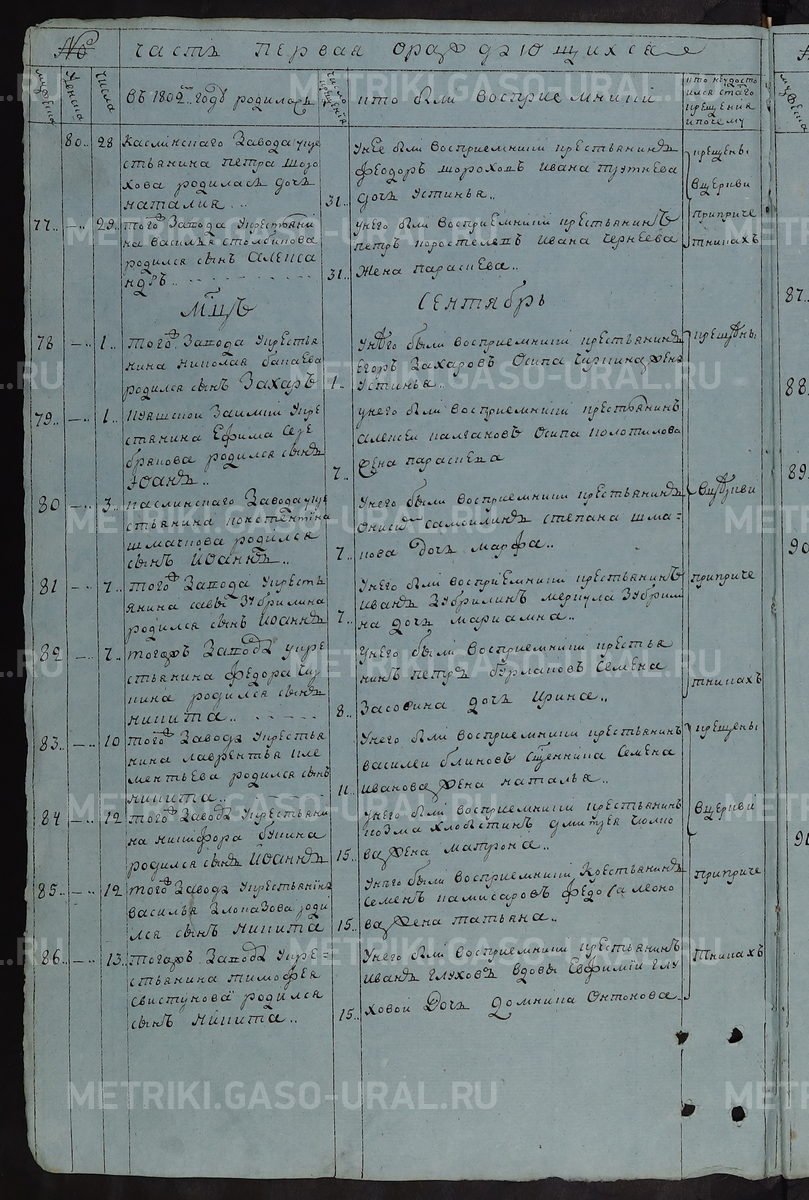 №
часть первая о раждающихся
мужеска
женска
числа
въ 1802 годъ родились
число крещения
кто были восприемники
кто неудосто
ился стаго
крещения
и почему
80.. 28 каслинскаго Завода укре
стьянина петра шоро
хова родилась дочь
наталия..
унее были восприемники крестьянинъ
феодоръ шороховъ ивана
31.. дочь устинья..
крещены
вцеркви
77.. 29. того Завода укрестьяни
на василья столбикова
родился сынъ Алекса
ндръ..
унего были восприемники крестьянинъ
петръ коростелевъ ивана Чернеева
31.. жена параскева..
приприче
тникахъ
Мцъ Сентябрь
78 1.. того Завода укрестья
нина николая
родился сынъ Захаръ
унего были восприемники крестьянинъ
егоръ Захаровъ осипа жена
1.. устинья..
крещены
79.. 1.. Заимки укре
стянина Ефима сере
брякова родился сынъ
Иоаннъ..
унего были восприемники крестьянинъ
алексей калгановъ осипа колотилова
7.. жена параскева
80 3.. каслинскаго Завода укре
стьянина констентина
шмачкова родился
сынъ Иоаннъ..
унего были восприемники крестьянинъ
самоилинъ степана шма=
7.. кова дочь марфа..
вцеркви
81 7.. того Завода укресть
янина савы Зубрилина
родился сынъ Иоаннъ
унего были восприемники крестьянинъ
иванъ Зубрилинъ меркула Зубрили
7.. на дочь мариамна..
приприче
82 7.. тогожъ Завода укре
стьянина федора
родился сынъ
никита..
унего были восприемники крестья
нинъ петръ бурлаковъ семена
8.. Засовина дочь ирина..
тникахъ
83.. 10 того Завода укрестья
нина лаврентья кле
ментьева родился сынъ
никита..
унего были восприемники крестьянинъ
василеи блиновъ сщенника семена
11.. иванова жена наталья..
крещены
84 12 того Завода укрестьяни
на никифора бунина
родился сынъ Иоаннъ
унего были восприемники крестьянинъ
козма хлобыстинъ дмитрея
15.. ва жена матрона..
вцеркви
85.. 12 того Завода укрестьянина
василья Злоказова роди
лся сынъ никита
унего были восприемники Крестьянинъ
семенъ камисаровъ федоса леоно
15.. ва жена татьяна..
приприче
86.. 13.. тогожъ Завода укре=
стьянина тимофея
свистунова родился
сынъ никита..
унего были восприемники крестьянинъ
иванъ глуховъ вдовы Евфимии глу
15.. ховой дочь домника онтонова..
тникахъ
METRIKI.GASO-URAL.RU